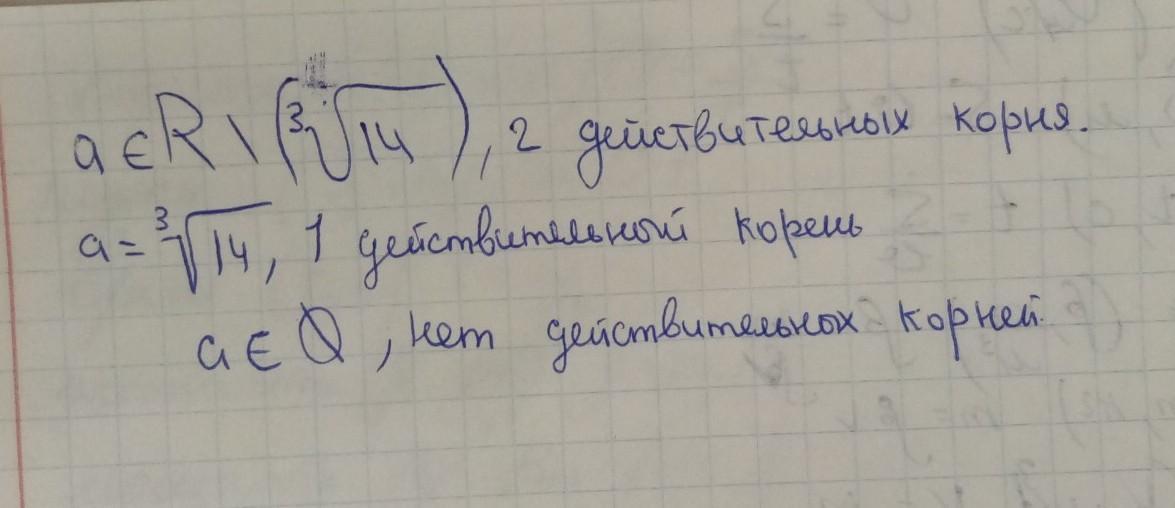 a ∈ R \ (∛14), 2 действительных корня.
a = ∛14, 1 действительный корень
a ∈ Ø, нет действительных корней.